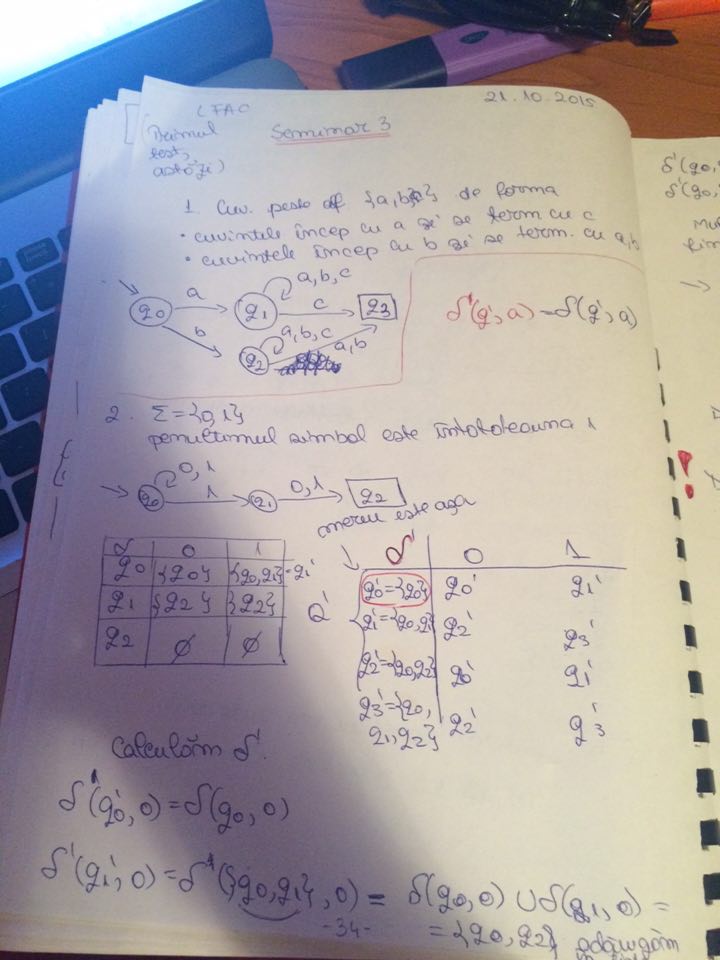 LFAC
21.10.2015
(Primul
test,
astăzi)
Seminar 3
1. Cuv. peste alf {a,b,c} de forma
• cuvintele încep cu a și se term cu c
• cuvintele încep cu b și se term. cu a,b
a,b,c
q0 a q1 c q3
b a,b,c
q2 a,b
δ'(q',a)=δ(q',a)
2. Σ={0,1}
penultimul simbol este întotdeauna 1
0,1
q0 1 q1 0,1 q2
mereu este așa
δ 0 1
q0 {q0} {q0,q1}=q1'
q1 {q2} {q2}
q2 ∅ ∅
Q'
δ' 0 1
q0'={q0} q0' q1'
q1'={q0,q1} q2' q3'
q2'={q0,q2} q0' q1'
q3'={q0,
q1,q2} q2' q3'
Calculăm δ'
δ'(q0',0)=δ(q0,0)
δ'(q1',0)=δ'({q0,q1},0) = δ(q0,0) ∪ δ(q1,0) =
= {q0,q2} adăugăm
-34-
δ'(q0,
δ'(q0,
!